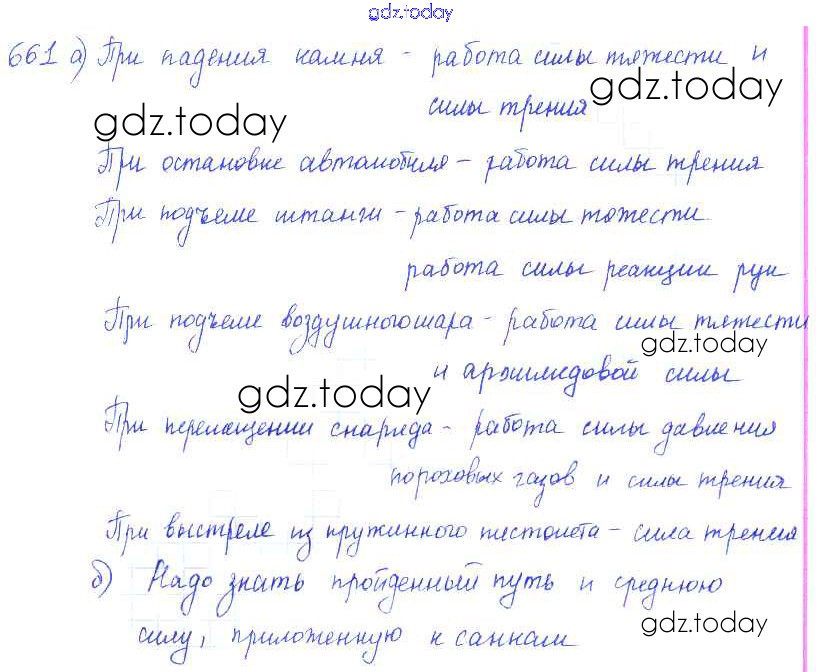 gdz.today
661 а) При падения камня - работа силы тяжести и
силы трения
gdz.today
gdz.today
При остановке автомобиля - работа силы трения
При подъеме штанги - работа силы тяжести.
работа силы реакции рук
При подъеме воздушного шара - работа силы тяжести
gdz.today
и архимедовой силы
gdz.today
При перемещении снаряда - работа силы давления
пороховых газов и силы трения
При выстреле из пружинного пистолета - сила трения
б) Надо знать пройденный путь и среднюю
силу, приложенную к санкам
gdz.today